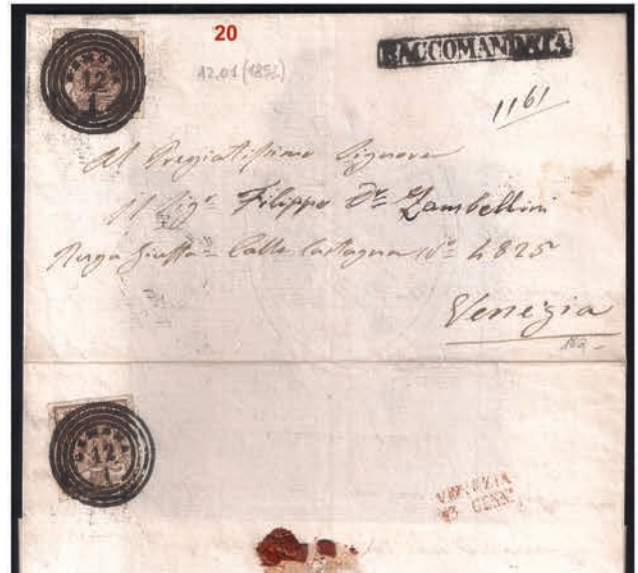 20
RACCOMANDATA
12
1
12.01 (185
1161
Al Pregiatissimo Signore
Il Sigr Filippo Dr Zambellini
Ruga Giuffa = Calle Castagna No= 4825
Venezia
12
1
VENEZIA
13 GENN.